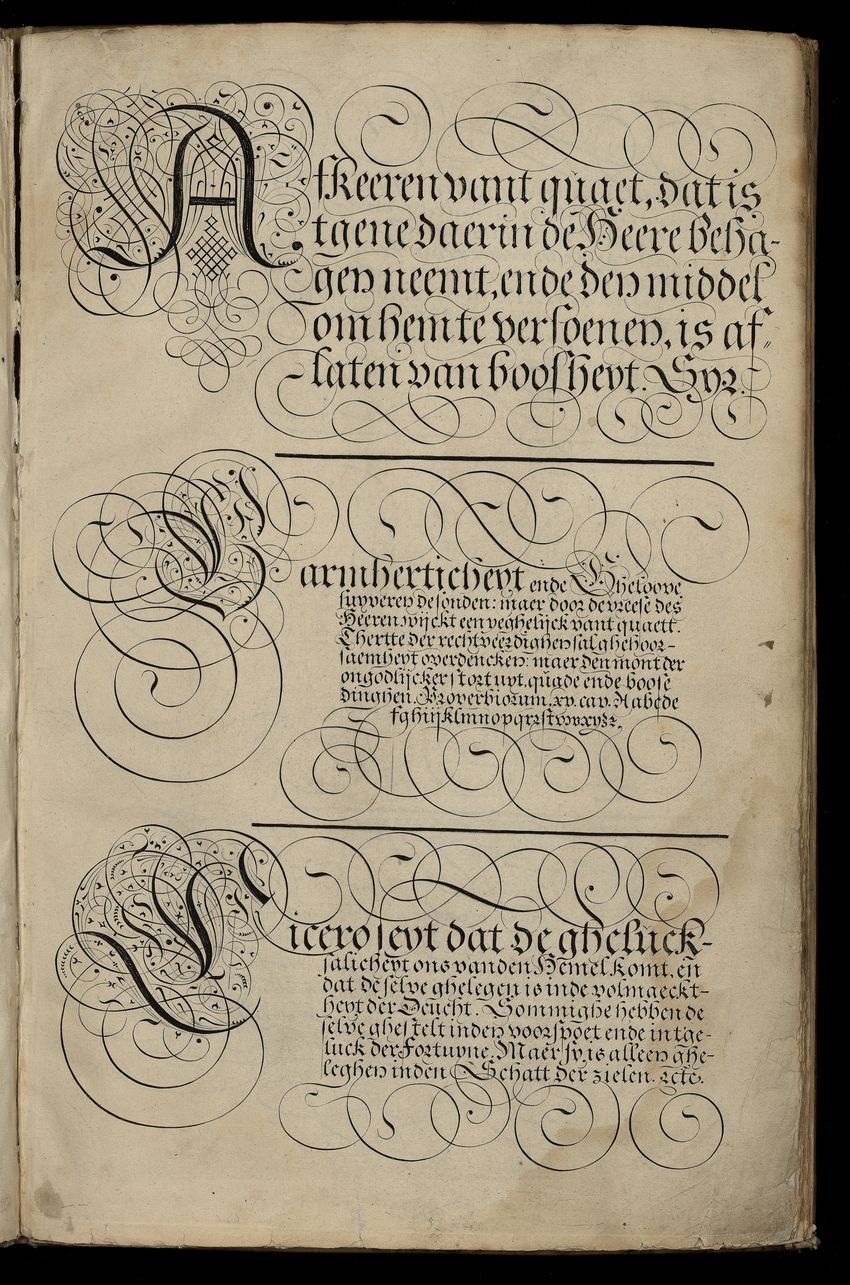 Afkeeren vant quaet, dat is
tgene daerin dē Heere beha-
gen neemt, ende den middel
om hem te versoenen, is af„
laten van boosheyt. Syr.
Barmherticheyt ende Gheloove
suyveren de sonden: maer door de vreese des
Heeren wijckt een yeghelijck vant quaett.
Thertte der rechtveerdighen sal ghehoor-
saemheyt overdencken: maer den mont der
ongodlijcker stort uyt quade ende boose
dinghen. Proverbiorum. xv. cap. A a b c d e
f g h i ij k l m n o p q r r s t v w x y z
Cicero seyt dat de gheluck-
salicheyt ons van den Hemel komt, eñ
dat de selve ghelegen is in de volmaeckt-
heyt der Deucht. Sommighe hebben de
selve ghestelt in den voorspoet ende in tge-
luck der Fortuyne. Maer sy is alleen ghe-
leghen in den Schatt der zielen. &cte.